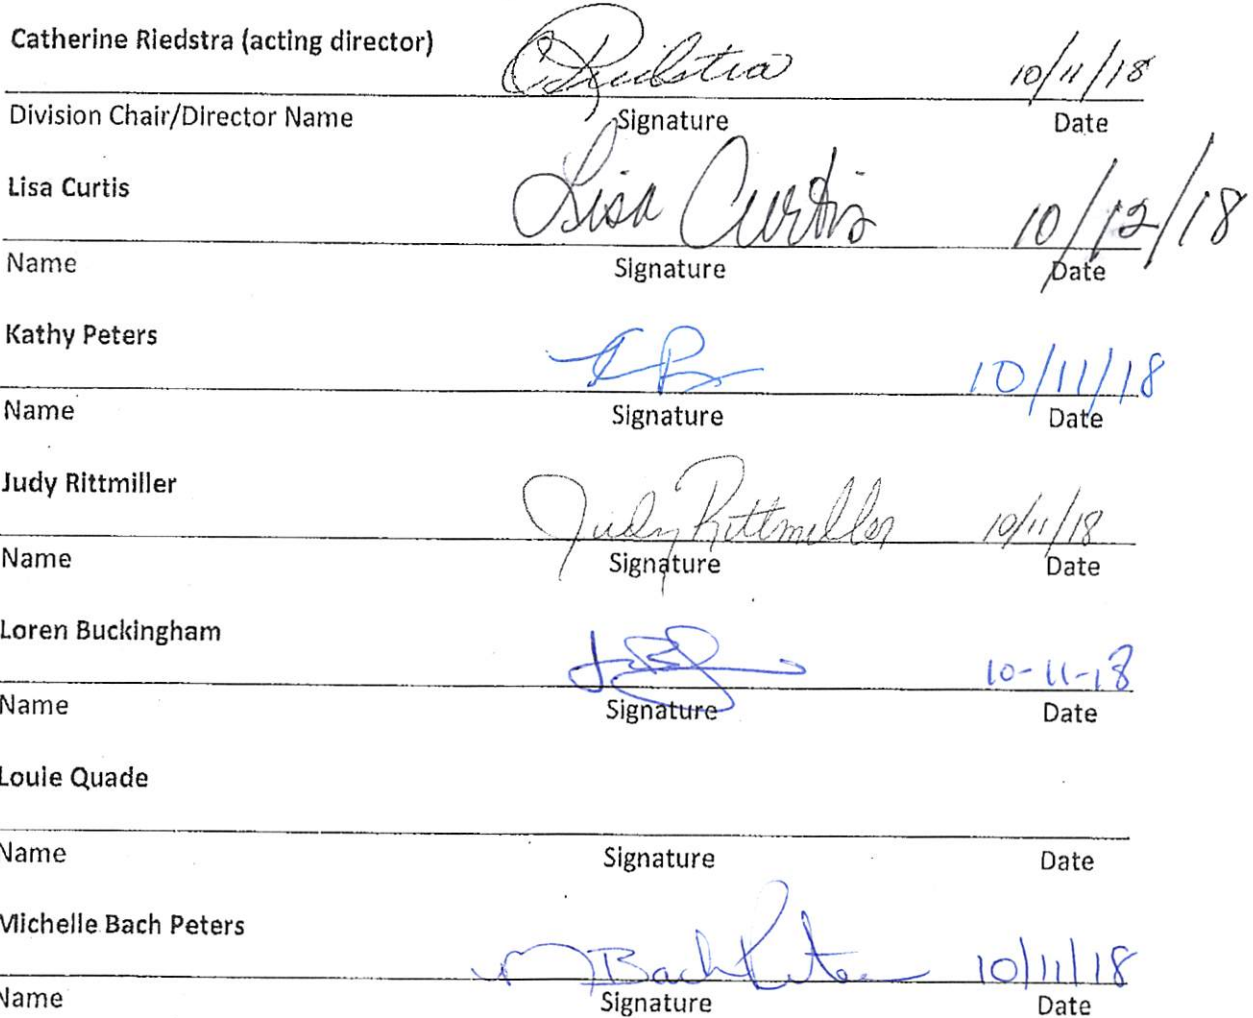 Catherine Riedstra (acting director) CRiedstra 10/11/18
Division Chair/Director Name Signature Date
Lisa Curtis Lisa Curtis 10/12/18
Name Signature Date
Kathy Peters K P 10/11/18
Name Signature Date
Judy Rittmiller Judy Rittmiller 10/11/18
Name Signature Date
Loren Buckingham 10-11-18
Name Signature Date
Louie Quade
Name Signature Date
Michelle Bach Peters M Bach Peters 10/11/18
Name Signature Date